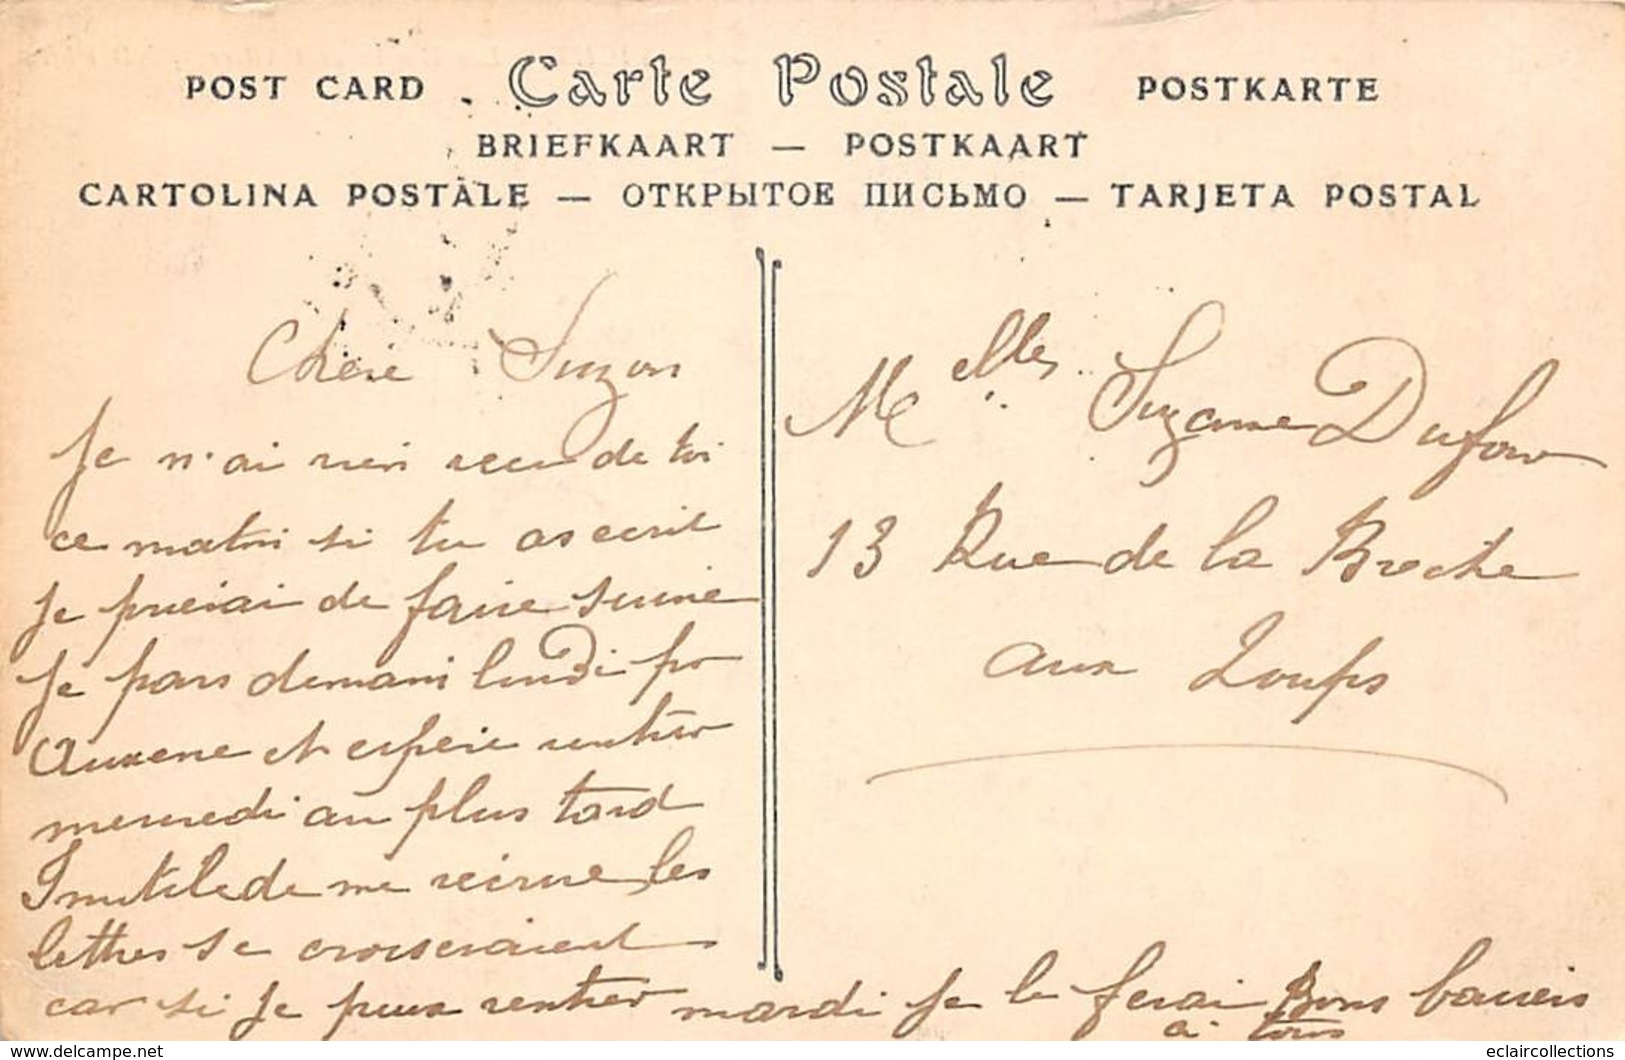 POST CARD Carte Postale POSTKARTE
BRIEFKAART — POSTKAART
CARTOLINA POSTALE — ОТКРЫТОЕ ПИСЬМО — TARJETA POSTAL
Chère Suzon
Je n'ai rien reçu de toi
ce matin si tu as ecrit
je prierai de faire suivre
Je pars demain lundi pr
Auxerre et espère rentrer
mercredi au plus tard
Inutile de me récrire, les
lettres se croiseraient
car si je peux rentrer mardi je le ferai Bons baisers
à tous
Melles Suzanne Dufour
13 Rue de la Breche
aux Loups
eclaircollections